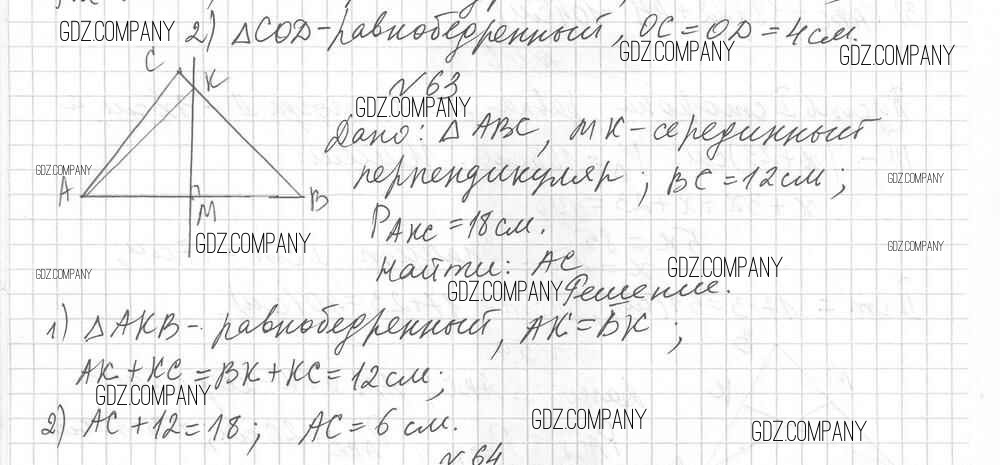 GDZ.COMPANY 2) △COD-равнобедренный, OC=OD=4см.
GDZ.COMPANY
GDZ.COMPANY
C
K
№63
GDZ.COMPANY
Дано: △ABC, MK-серединный
GDZ.COMPANY
перпендикуляр; BC=12см;
GDZ.COMPANY
A
B
M
P AKC =18см.
GDZ.COMPANY
GDZ.COMPANY
Найти: AC
GDZ.COMPANY
GDZ.COMPANY
GDZ.COMPANY Решение.
1) △AKB - равнобедренный, AK=BK;
AK+KC=BK+KC=12см;
GDZ.COMPANY
2) AC+12=18; AC=6 см.
GDZ.COMPANY
GDZ.COMPANY
№64